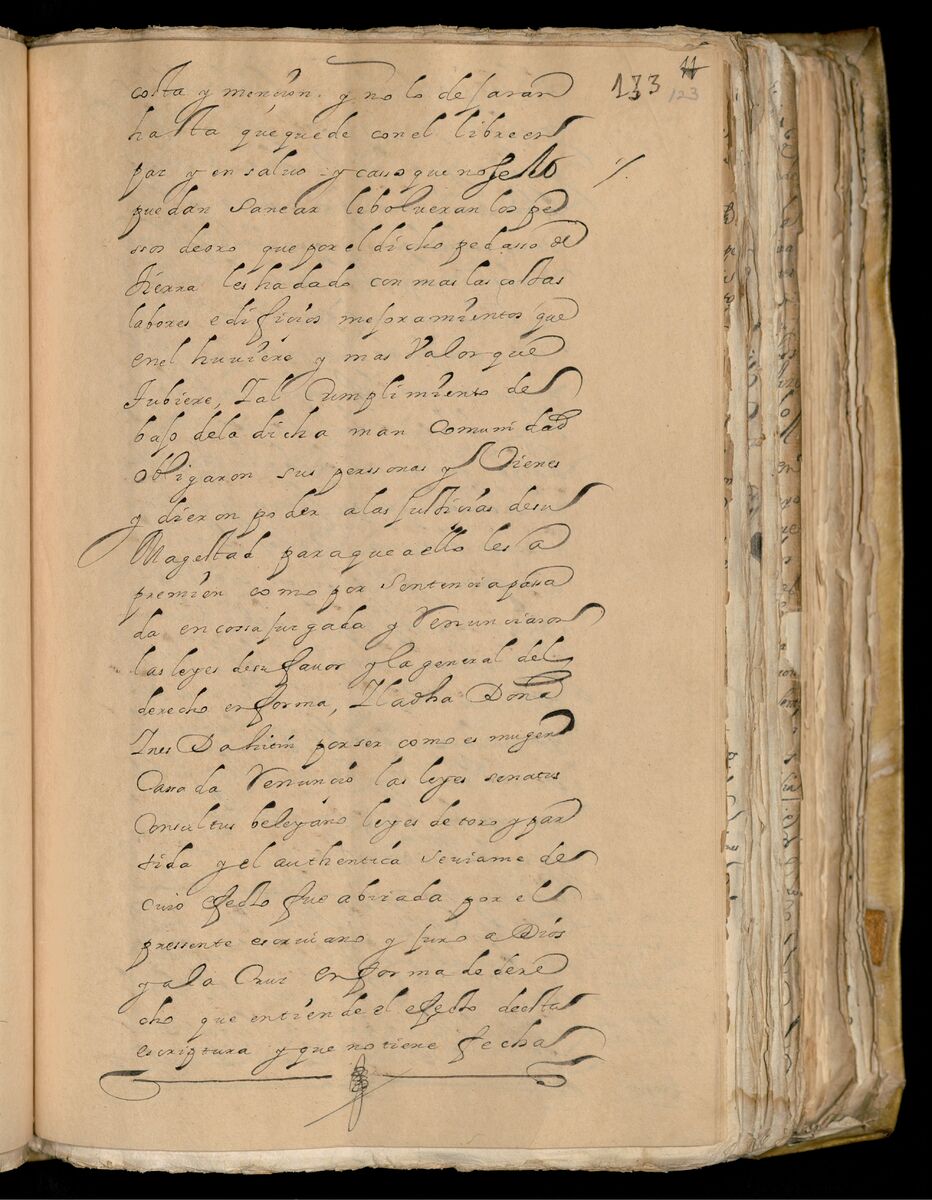 133 11
123
costa y mencion. y no lo dejaran
hasta que quede con el libre en
paz y en saluo - y casso que no se lo
puedan sanear le bolueran los pe
ssos de oro que por el dicho pedasso de
tierra les ha dado con mas las costas
labores edificios mejoramientos que
en el huuiere y mas Valor que
tubiere, Y al Cumplimiento de
bajo de la dicha man comunidad
obligaron sus perssonas y Vienes
y dieron poder a las justicias de su
Magestad para que a ello les a
premien como por sentencia passa
da en cossa jusgada y Renunciaron
las leyes de su fauor y la general del
derecho en forma, Y la dha Doña
Ines por ser como es muger
Cassada Renunció las leyes senatus
Consultus beleyano leyes de toro y par
tida y el authentica
cuio efecto fue abisada por el
pressente escriuano y juro a Dios
y a la Cruz en forma de dere
cho que entiende el efecto de esta
escriptura y que no tiene fecha